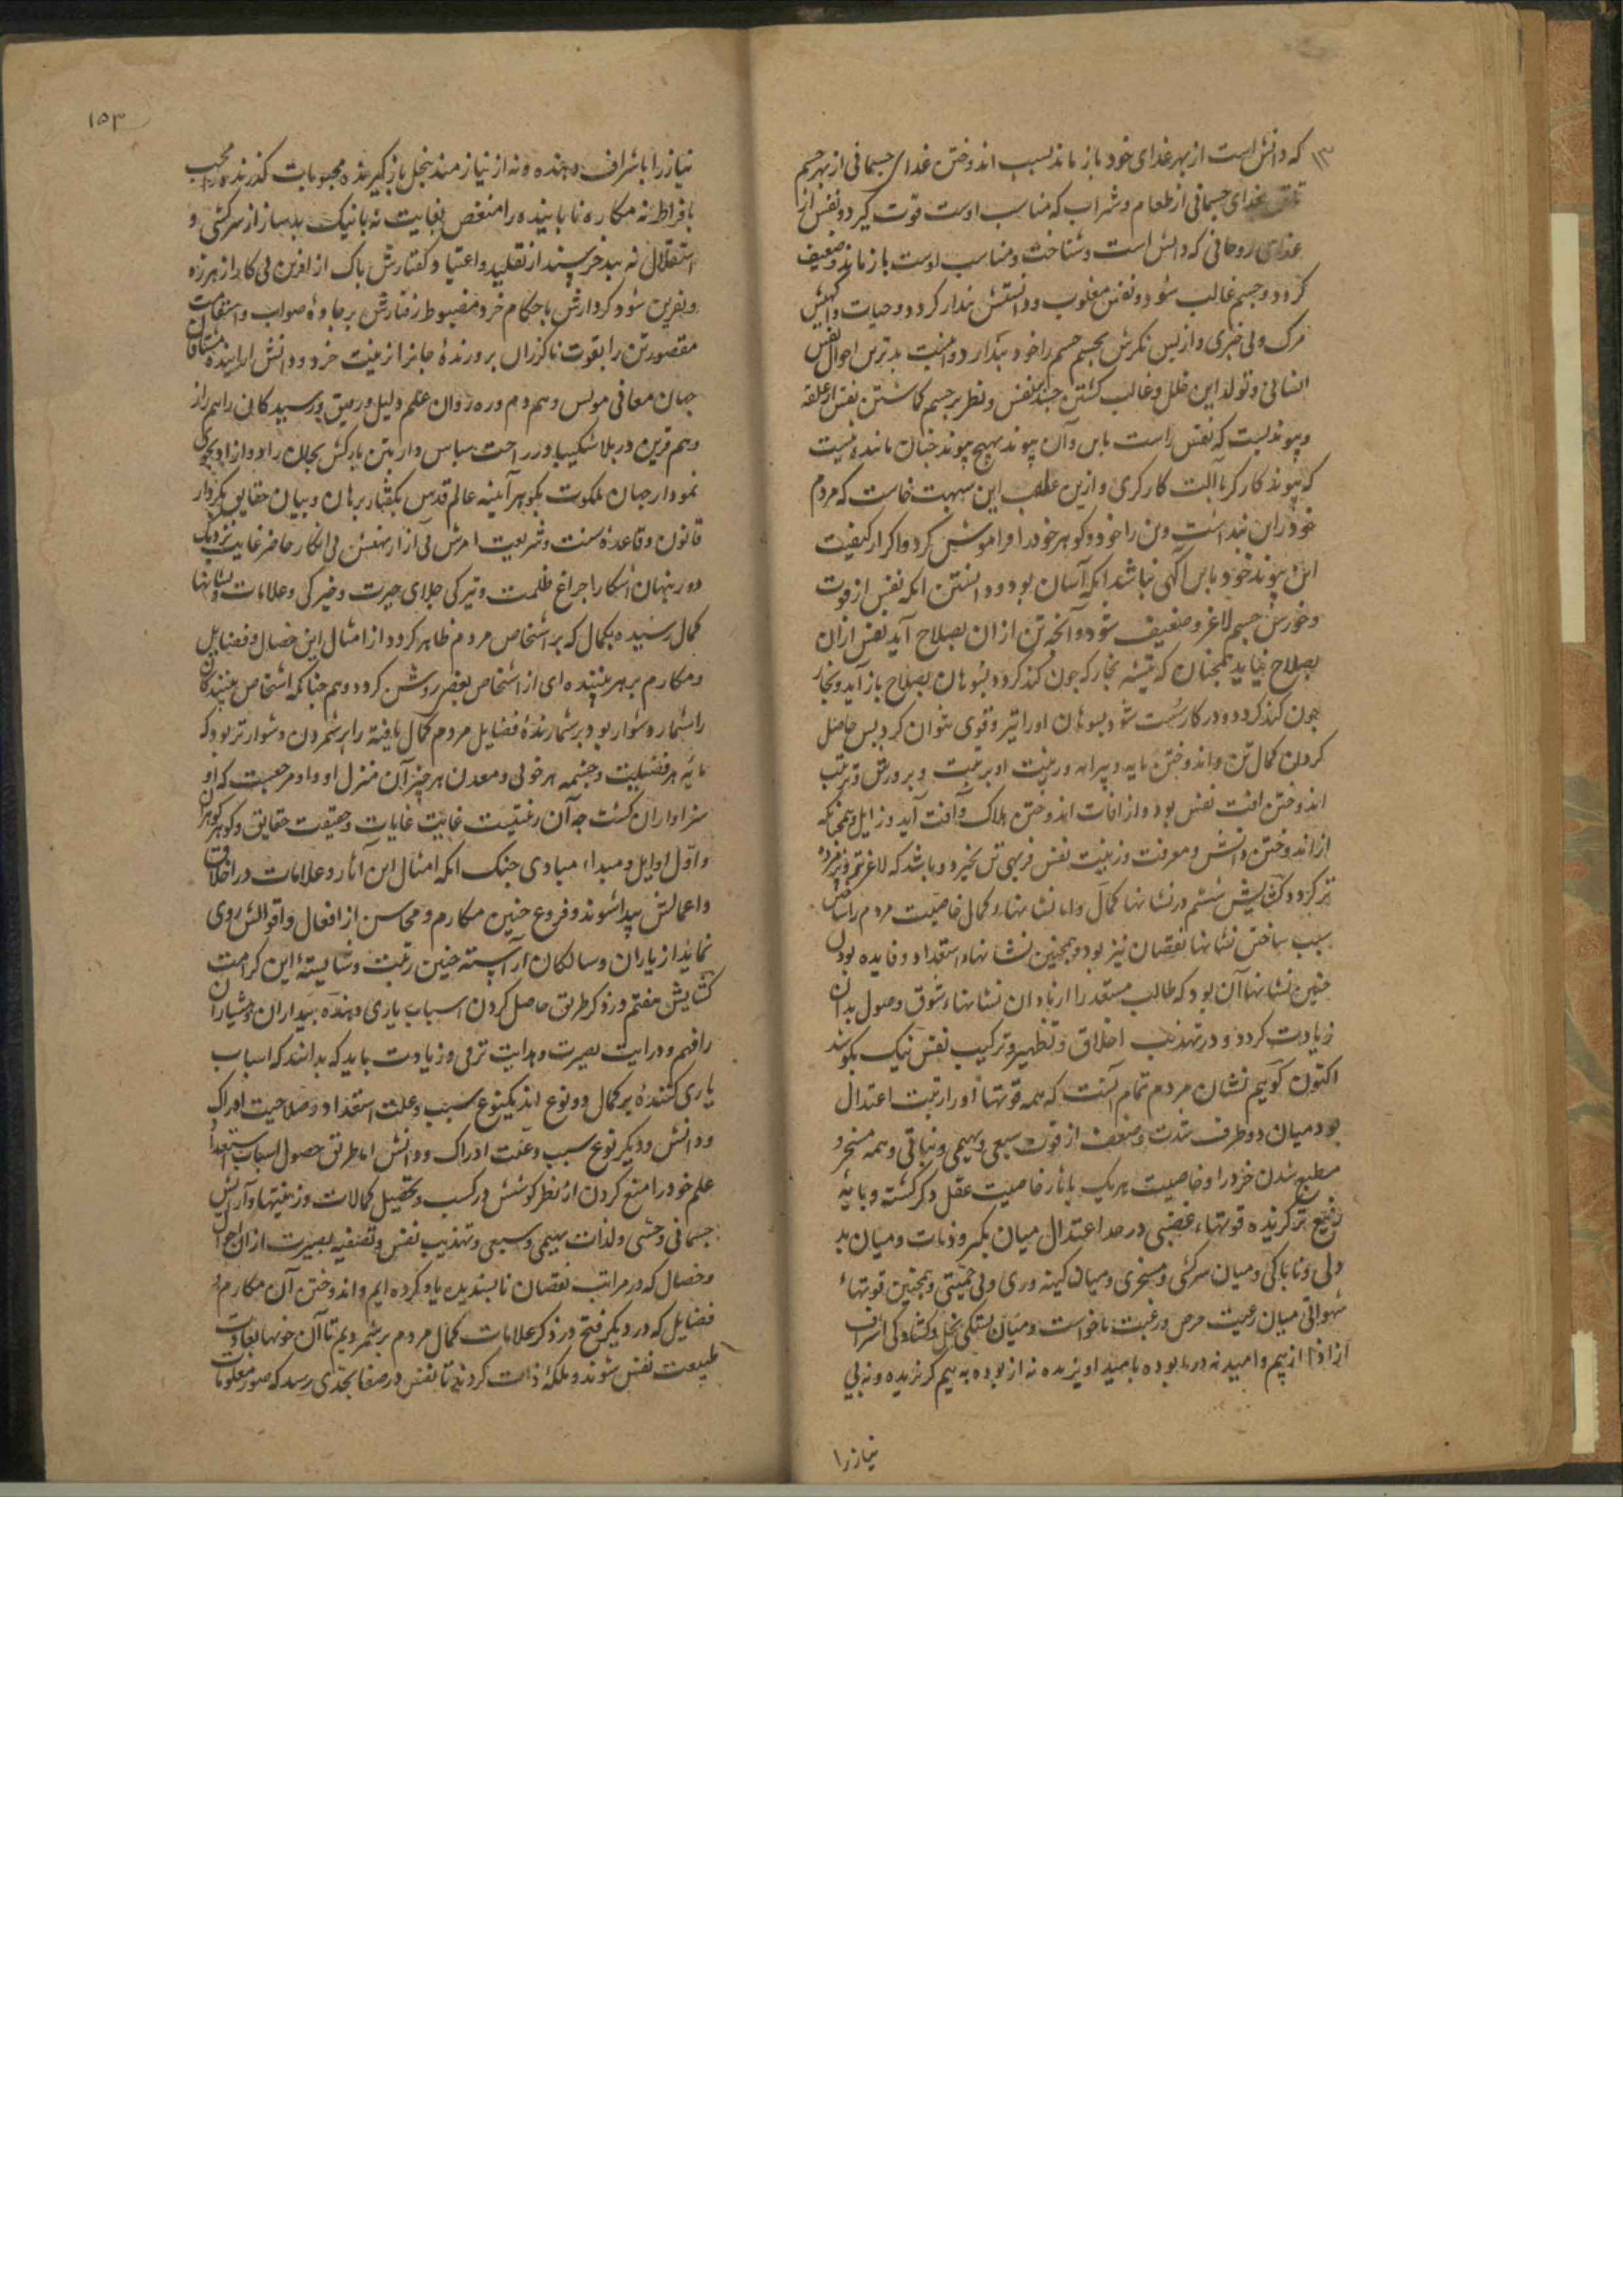 که دانش است از بهر غذای خود باز ماند بسبب اندوختن غذای جسمانی از بهر جسم
غذای جسمانی از طعام و شراب که مناسب اوست قوت گیرد و نفس از
غذای روحانی که دانش است و شناخت و مناسب اوست باز ماند و ضعیف
کردد و جسم غالب شود و نفس مغلوب و دانستنش پندار کردد و حیات و آکهیش
مرک و بی خبری و از پس نکرش بجسم جسم را خود پندارد و اینت بدترین احوال نفس
انسانی و تولد این خلل و غالب کشتن جسد بنفس و نظر بر جسم کماشتن نفس از علقه
و پیوندیست که نفس راست باین و آن پیوند بهیچ پیوند چنان ماننده نیست
که پیوند کارکر با آلت کارکری و ازین سبب این خاست که مردم
خود را این پنداشت و تن را خود و کوهر خود را فراموش کرد و اکر از کیفیت
این پیوند خود باین آکهی نباشد انکه آسان بود دانستن انکه نفس از قوت
و خورش جسم لاغر و ضعیف شود و آنچه تن از ان بصلاح آید نفس ازان
بصلاح نیاید همچنان که تیشه نجار که چون کند کردد بسوهان بصلاح باز آید و نجار
چون کند کردد و در کار سست شود بسوهان او را تیز و قوی نتوان کرد پس حاصل
کردن کمال تن و اندوختن مایه و پیرایه و زینت او بر تربیت و پرورش و ترتیب
اندوختن آفت نفس بود و از آفات اندوختن هلاک و آفت آید و زایل و همچنانکه
از اندوختن دانش و معرفت و زینت نفس فربهی تن نخیزد و باشد که لاغرتر و پژمرده
تر کردد کشایش ششم در نشانهای کمال و اما نشانهای کمال خاصیت مردم را شناختن
سبب شناختن نشانهای نقصان نیز بود و همچنین نشانهای استعداد و فایده بودن
چنین نشانها آن بود که طالب مستعد را از یاد آن نشانها شوق وصول بدان
زیادت کردد و در تهذیب اخلاق و تطهیر و ترکیب نفس نیک بکوشد
اکنون کوییم نشان مردم تمام آنست که همه قوتها او را رتبت اعتدال
بود میان دو طرف شدت و ضعف از قوت سبعی و بهیمی و نباتی و همه مسخر و
مطیع شدن خرد را و خاصیت هریک باثار خاصیت عقل دکر کشته و بپایه
رفیع تر کرنده قوتهاء غضبی در حد اعتدال میان تکبر و ذلت و میان بد
دلی و ناباکی و میان سرکشی و مسخری و میان کینه وری و بی حمیتی و همچنین قوتهاء
شهوانی میان رغبت حرص و رغبت ناخواست و میان بستکی بخل و کشادکی اسراف
آزاد از بیم و امید نه در نابوده بامید آویزنده نه از بوده به بیم کریزنده و نه بی
نیاز را
۱۵۳
نیاز را باسراف دهنده و نه از نیازمند ببخل باز کیرنده محبوبات کذرنده را محب
بافراط نه مکاره ناپاینده را منغص بغایت نه با نیک بدساز از سرکشی و
استقلال نه ببد خرسند از تقلید و اعتیاد کفتارش پاک از آفرین بی کار از هرزه
و نفرین شود کردارش باحکام خرد مضبوط رفتارش بر جادهٔ صواب و استقامت
مقصور تن را بقوت ناکزران پرورندهٔ جان را زینت خرد و دانش آراینده مشتاقان
جهان معانی مونس و هم دم و ره روان علم دلیل و رفیق و رسیدکان را هم راز
و هم قرین در بلا شکیبا و در راحت سپاس دار بتن بارکش بجان راد و آزاد بخوی
نمودار جهان ملکوت بکوهر آیینه عالم قدس بکفتار برهان و بیان حقایق بکردار
قانون و قاعدهٔ سنت و شریعت امرش بی آزار نهیش بی انکار حاضر غایب نزدیک
دور پنهان آشکارا چراغ ظلمت و تیرکی جلای حیرت و خیرکی و علامات و نشانها
کمال رسیده بکمال که بر اشخاص مردم ظاهر کردد از امثال این خصال و فضایل
و مکارم بر هر بیننده ای از اشخاص بعضی روشن کردد و هم چنانکه اشخاص بینندکان
را شمار دشوار بود بر شمارندهٔ فضایل مردم کمال یافته را بر شمردن دشوارتر بود که
مایه هر فضیلت و چشمه هر خوبی و معدن هر چیز آن منزل او را و مرجعست که او
سزاوار ان کشت چه آن رغبتیست غایت غایات و حقیقت حقایق و کوهر کوهران
و اول اوایل و مبداء مبادی چنک انکه امثال این آثار و علامات در اخلاق
و اعمالش پیدا شوند و فروع چنین مکارم و محاسن از افعال و اقوالش روی
نماید از یاران و سالکان آراسته چنین رتبت و شایستهٔ این کرامت
کشایش هفتم در ذکر طریق حاصل کردن اسباب یاری دهنده بیداران و هشیاران
را فهم و درایت بصیرت و هدایت ترقی و زیادت باید که بدانند که اسباب
یاری کنندهٔ بر کمال دو نوع اند یکنوع سبب و علت استعداد و صلاحیت ادراک
و دانش و دیکر نوع سبب و علت ادراک و دانش اما طریق حصول اسباب استعداد
علم خود را منع کردن از نظر کوشش در کسب و تحصیل کمالات و زینتها و آرایش
جسمانی و حسی و لذات بهیمی و سبعی و تهذیب نفس و تصفیه بصیرت از ان احوال
و خصال که در مراتب نقصان ناپسندیده یاد کرده ایم و اندوختن آن مکارم و
فضایل که در دیکر فتح در ذکر علامات کمال مردم برشمردیم تا آن خوبها بعادت
طبیعت نفس شوند و ملکهٔ ذات کردند تا نفس در صفا بحدی رسد که صور معلومات